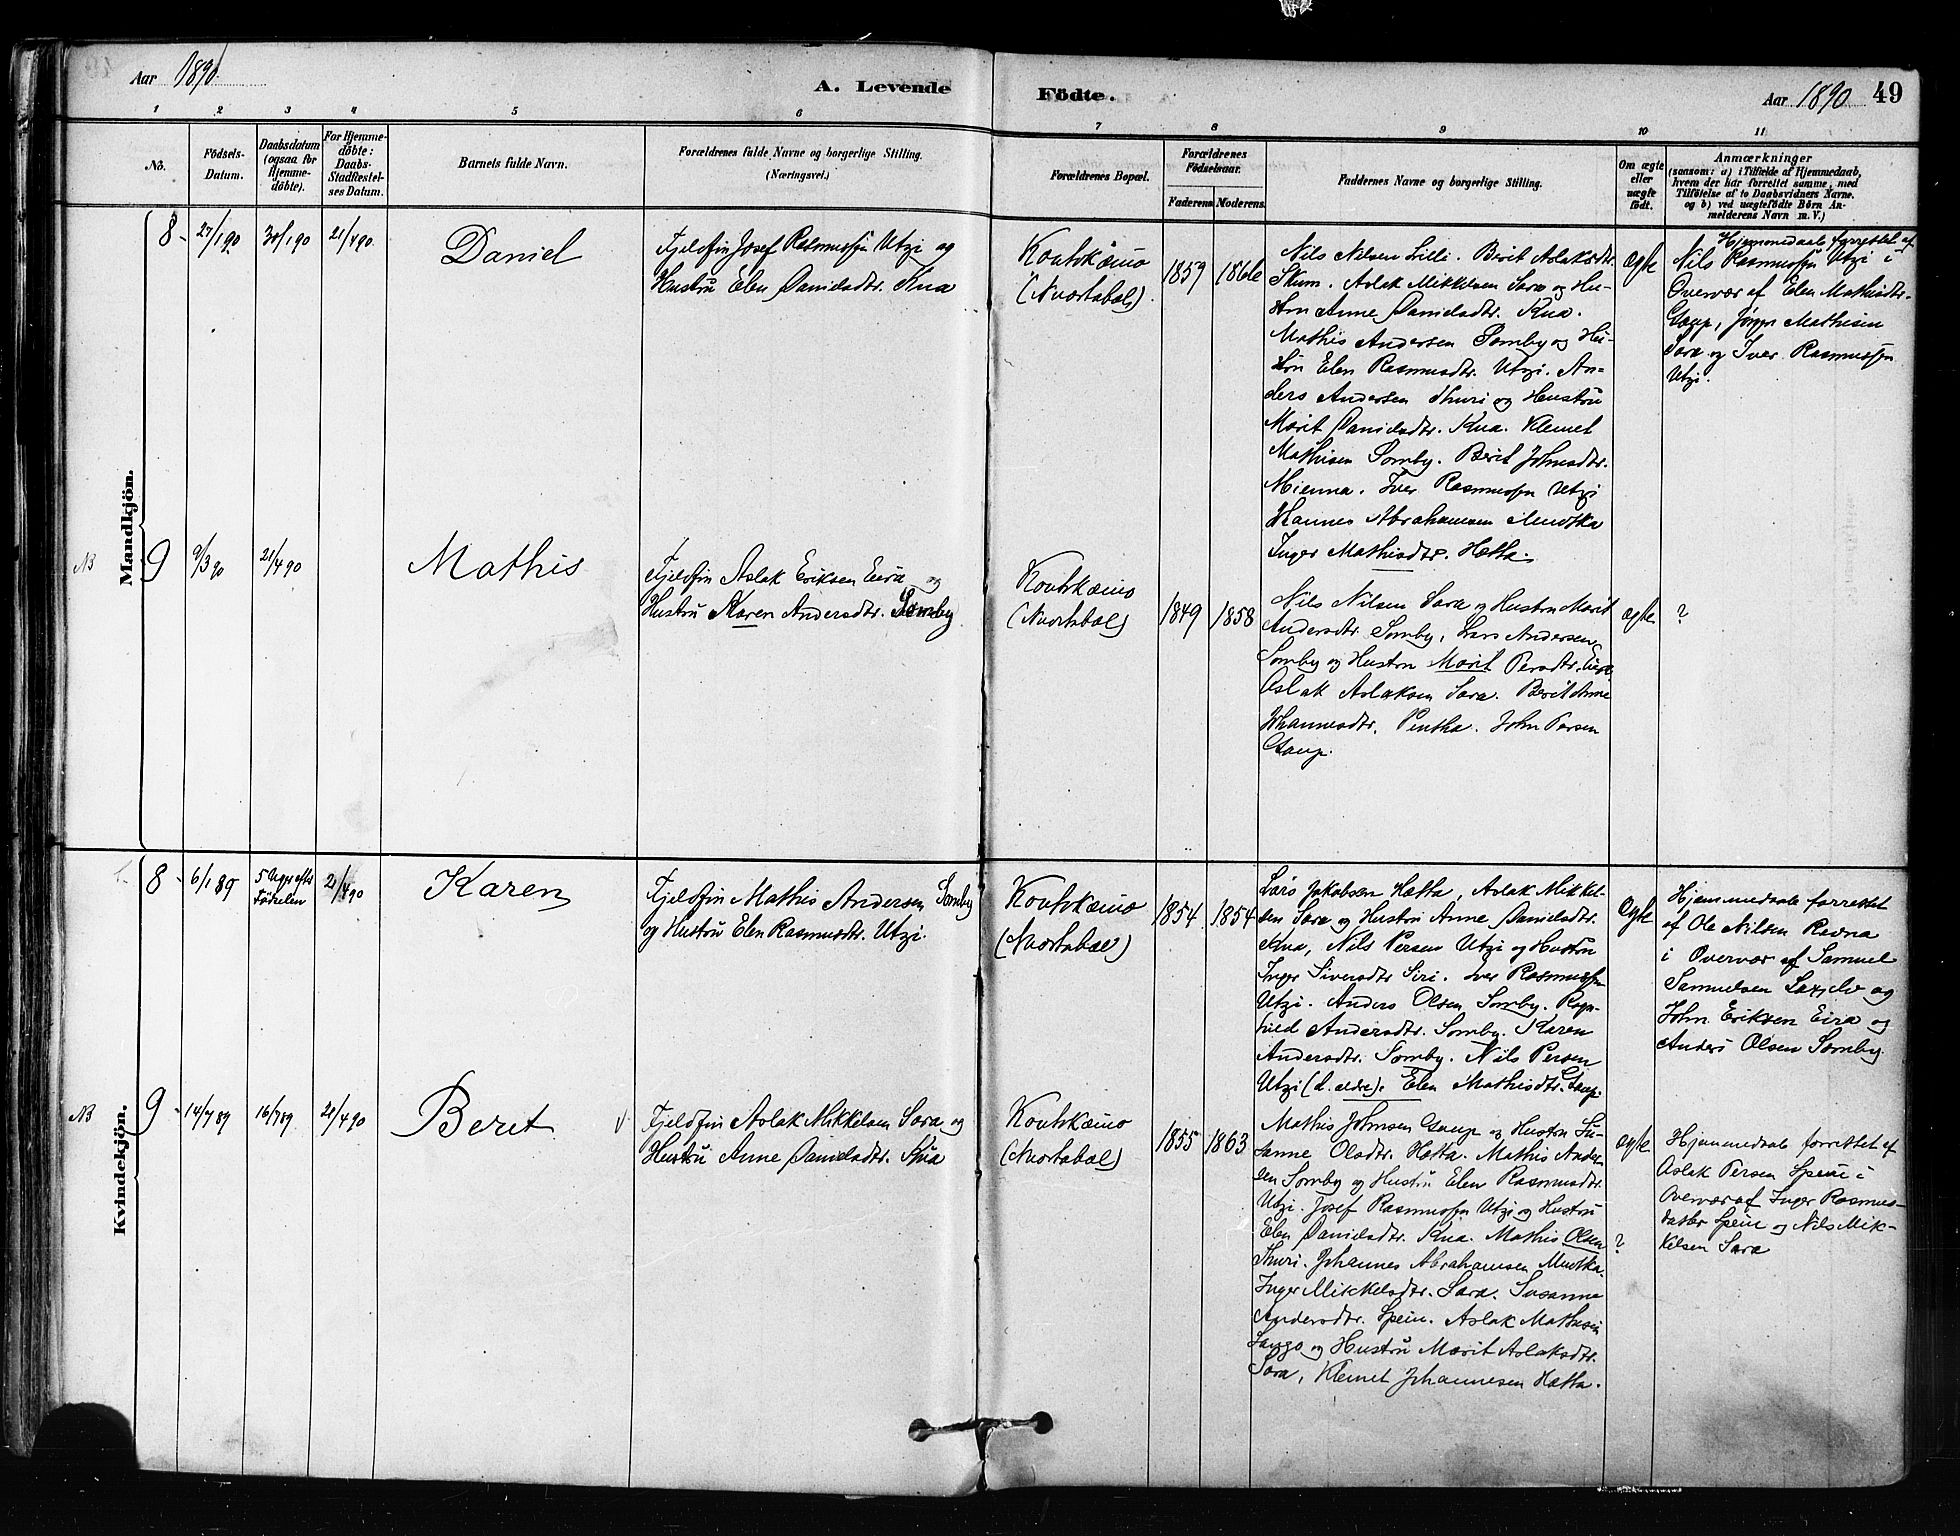 Aar 1890.
A. Levende
Födte.
Aar 1890
49
1
2
3
4
5
6
7
8
9
10
11
No.
Födsels-
Datum.
Daabsdatum
(ogsaa for
Hjemme-
döbte).
For Hjemme-
döbte:
Daabs-
Stadfæstel-
ses Datum.
Barnets fulde Navn.
Forældrenes fulde Navne og borgerlige Stilling.
(Næringsvei.)
Forældrenes Bopæl.
Forældrenes
Födselsaar.
Faderens.
Moderens.
Faddernes Navne og borgerlige Stilling.
Om ægte
eller
uægte
födt.
Anmærkninger
(saasom: a) i Tilfælde af Hjemmedaab,
hvem der har forrettet samme, med
Tilföielse af to Daabsvidners Navne.
og b) ved uægtefödte Börn An-
melderens Navn m. V.)
Mandkjön.
8 -
27/1 90
30/1 90
21/4 90.
Daniel
Fjeldfin Josef Rasmussen Utzi og
Hustru Elen Danielsdtr. Kua
Koutokæino
(Nuortabæl).
1859
1866
Nils Nilsen Lilli. Berit Aslaksdtr.
Skum. Aslak Mikkelsen Sara og Hu-
stru Anne Danielsdtr. Kua.
Mathis Andersen Somby og Hu-
stru Elen Rasmusdtr. Utzi. An-
ders Andersen Thuri og Hustru
Marit Danielsdtr. Kua. Klemet
Mathisen Somby. Berit Johnsdtr.
Mienna. Iver Rasmussen Utzi
Hannes Abrahamsen Mudtka
Inger Mathisdtr. Hætta.
ægte
Hjemmedaab forrettet af
Nils Rasmussen Utzi i
Overvær af Elen Mathisdtr.
Gaup, Jörgen Mathisen
Sara og Iver Rasmussen
Utzi.
NB
9
9/3 90
21/4 90
Mathis
Fjeldfin Aslak Eriksen Eira og
Hustru Karen Andersdtr. Somby
Koutokæino
(Nuortabæl)
1849
1858
Nils Nilsen Sara og Hustru Marit
Andersdtr. Somby, Lars Andersen
Somby og Hustru Marit Persdtr. Eira
Aslak Aslaksen Sara. Berit Anne
Johannesdtr. Pentha. John Persen
Gaup.
ægte
?
Kvindekjön.
8 -
6/1 89
5 Uger efter
Födselen
21/4 90
Karen
Fjeldfin Mathis Andersen Somby
og Hustru Elen Rasmusdtr. Utzi.
Koutokæino
(Nuortabæl)
1854
1854
Lars Jakobsen Hætta, Aslak Mikkel-
sen Sara og Hustru Anne Danielsdtr.
Kua, Nils Persen Utzi og Hustru
Inger Siversdtr Siri. Iver Rasmussen
Utzi. Anders Olsen Somby. Ragn-
hild Andersdtr. Somby. Karen
Andersdtr. Somby. Nils Persen
Utzi (d. ældre). Elen Mathisdtr. Gaup.
ægte
Hjemmedaab forrettet
af Ole Nilsen Ravna
i Overvær af Samuel
Samuelsen Laxelv og
John Eriksen Eira og
Anders Olsen Somby.
NB
9 -
14/7 89
16/7 89
21/4 90
Beret
Fjeldfin Aslak Mikkelsen Sara og
Hustru Anne Danielsdtr. Kua
Koutokæino
(Nuortabæl)
1855
1863
Mathis Johnsen Gaup og Hustru Su-
sanne Olsdtr. Hætta. Mathis Ander-
sen Somby og Hustru Elen Rasmusdtr.
Utzi. Josef Rasmussen Utzi og Hustru
Elen Danielsdtr. Kua. Mathis Olsen
Thuri. Johannes Abrahamsen Mudtka.
Inger Mikkelsdtr. Sara. Susanne
Andersdtr. Spein. Aslak Mathisen
og Hustru Marit Aslaksdtr.
Sara, Klemet Johannesen Hætta.
ægte
?
Hjemmedaab forrettet af
Aslak Persen Spein i
Overvær af Inger Rasmus-
datter Spein og Nils Mik-
kelsen Sara